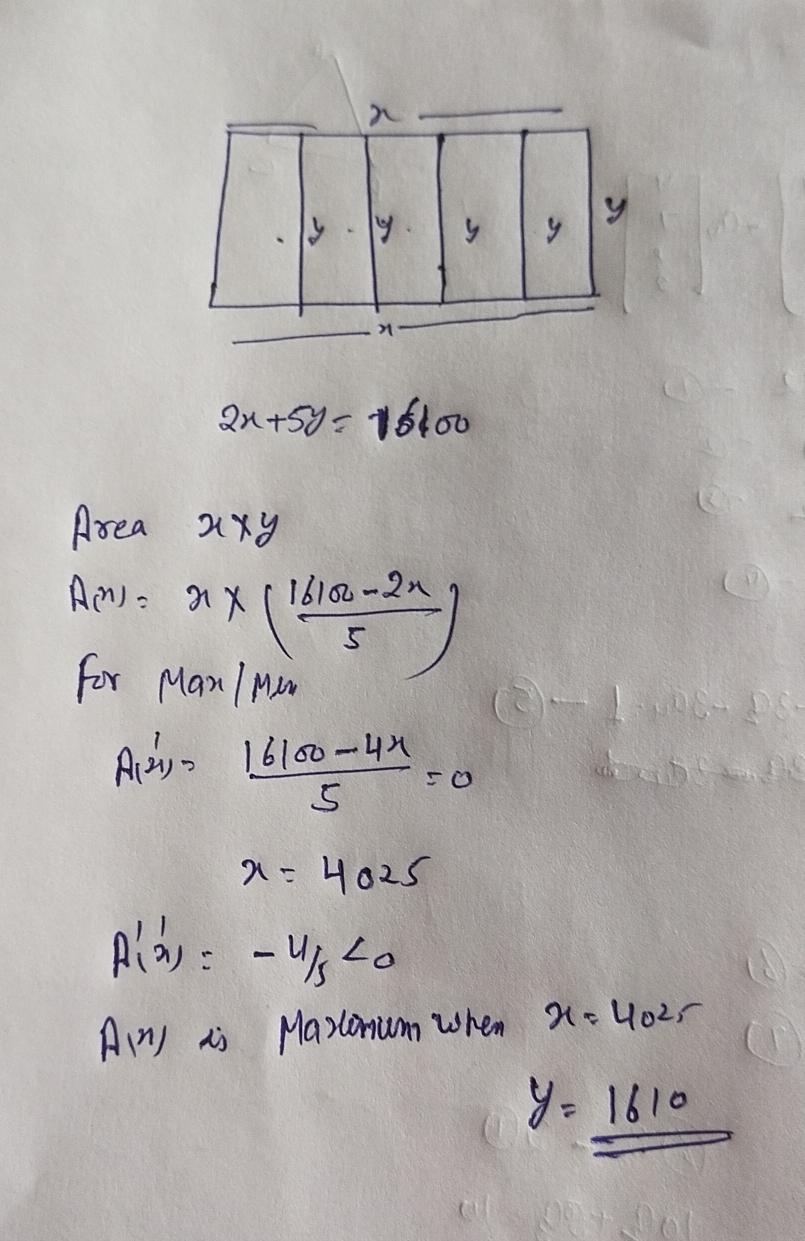 x
y y y y y
x
2x+5y = 16100
Area x×y
A(x) = x × (16100-2x / 5)
for Max/Min
A'(x) = 16100-4x / 5 = 0
x = 4025
A''(x) = -4/5 <0
A(x) is Maximum when x = 4025
y = 1610